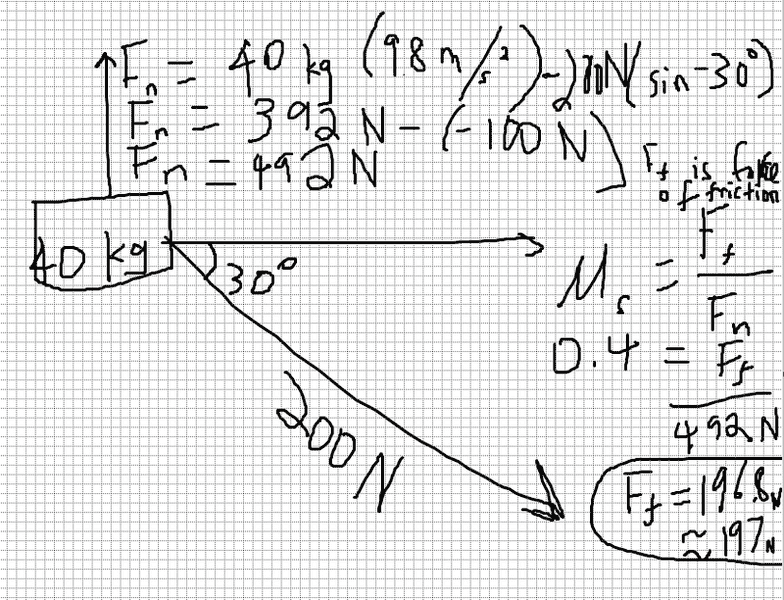 F_n = 40 kg (9.8 m/s²) - 200N (sin -30°)
F_n = 392 N - (-100 N)
F_n = 492 N
F_f is force
of friction
40 kg
30°
200 N
M_s = F_f / F_n
0.4 = F_f / 492 N
F_f = 196.8 N
≈ 197 N